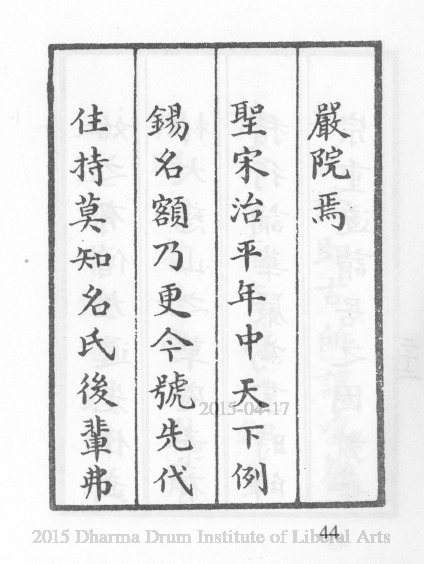 嚴院焉
聖宋治平年中天下例
錫名額乃更今號先代
住持莫知名氏後輩弗
2015-04-17
44
2015 Dharma Drum Institute of Liberal Arts